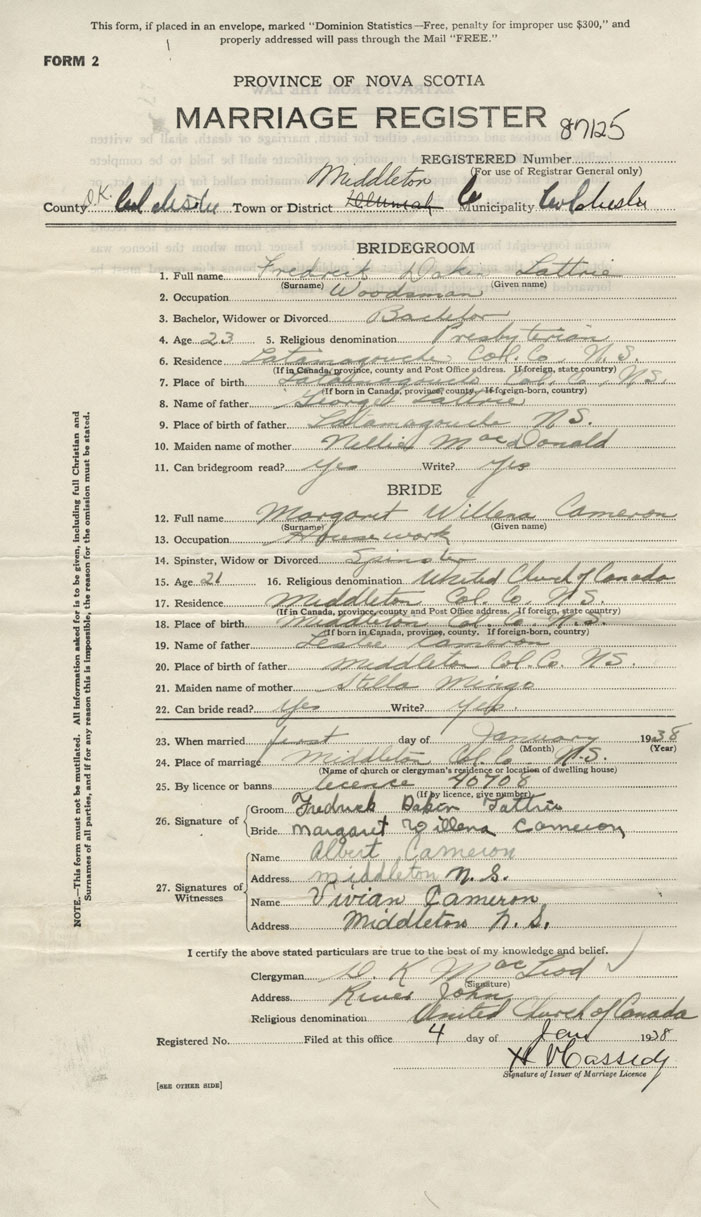 This form, if placed in an envelope, marked "Dominion Statistics—Free, penalty for improper use $300," and
properly addressed will pass through the Mail "FREE."
FORM 2
PROVINCE OF NOVA SCOTIA
MARRIAGE REGISTER 87125
REGISTERED Number
(For use of Registrar General only)
Middleton
O.K.
County Colchester Town or District Co Municipality Colchester
BRIDEGROOM
1. Full name Fredrick Daken Tattrie
(Surname) (Given name)
2. Occupation Woodsman
3. Bachelor, Widower or Divorced Bachelor
4. Age 23 5. Religious denomination Presbyterian
6. Residence Tatamagouche Col. Co. N.S.
(If in Canada, province, county and Post Office address. If foreign, state country)
7. Place of birth Tatamagouche Col. Co. NS.
(If born in Canada, province, county. If foreign-born, country)
8. Name of father George Tattrie
9. Place of birth of father Tatamagouche NS.
10. Maiden name of mother Nellie MacDonald
11. Can bridegroom read? Yes Write? Yes
BRIDE
12. Full name Margaret Willena Cameron
(Surname) (Given name)
13. Occupation Housework
14. Spinster, Widow or Divorced Spinster
15. Age 21 16. Religious denomination United Church of Canada
17. Residence Middleton Col. Co. N.S.
(If in Canada, province, county and Post Office address. If foreign, state country)
18. Place of birth Middleton Col. Co. N.S.
(If born in Canada, province, county. If foreign-born, country)
19. Name of father Leslie Cameron
20. Place of birth of father Middleton Col. Co. NS.
21. Maiden name of mother Stella Mingo
22. Can bride read? Yes Write? Yes.
23. When married first day of January 1938
(Month) (Year)
24. Place of marriage Middleton Col. Co. N.S.
(Name of church or clergyman's residence or location of dwelling house)
25. By licence or banns licence 40708
(If by licence, give number)
26. Signature of
Groom Fredrick Daken Tattrie
Bride Margaret Willena Cameron
27. Signatures of Witnesses
Name Albert Cameron
Address middleton N.S.
Name Vivian Cameron
Address Middleton N.S.
I certify the above stated particulars are true to the best of my knowledge and belief.
Clergyman D. K MacLeod
(Signature)
Address River John
Religious denomination United Church of Canada
Registered No. Filed at this office 4 day of Jan 1938
H V Cassidy
Signature of Issuer of Marriage Licence
[SEE OTHER SIDE]
NOTE.—This form must not be mutilated. All information asked for is to be given, including full Christian and
Surnames of all parties, and if for any reason this is impossible, the reason for the omission must be stated.